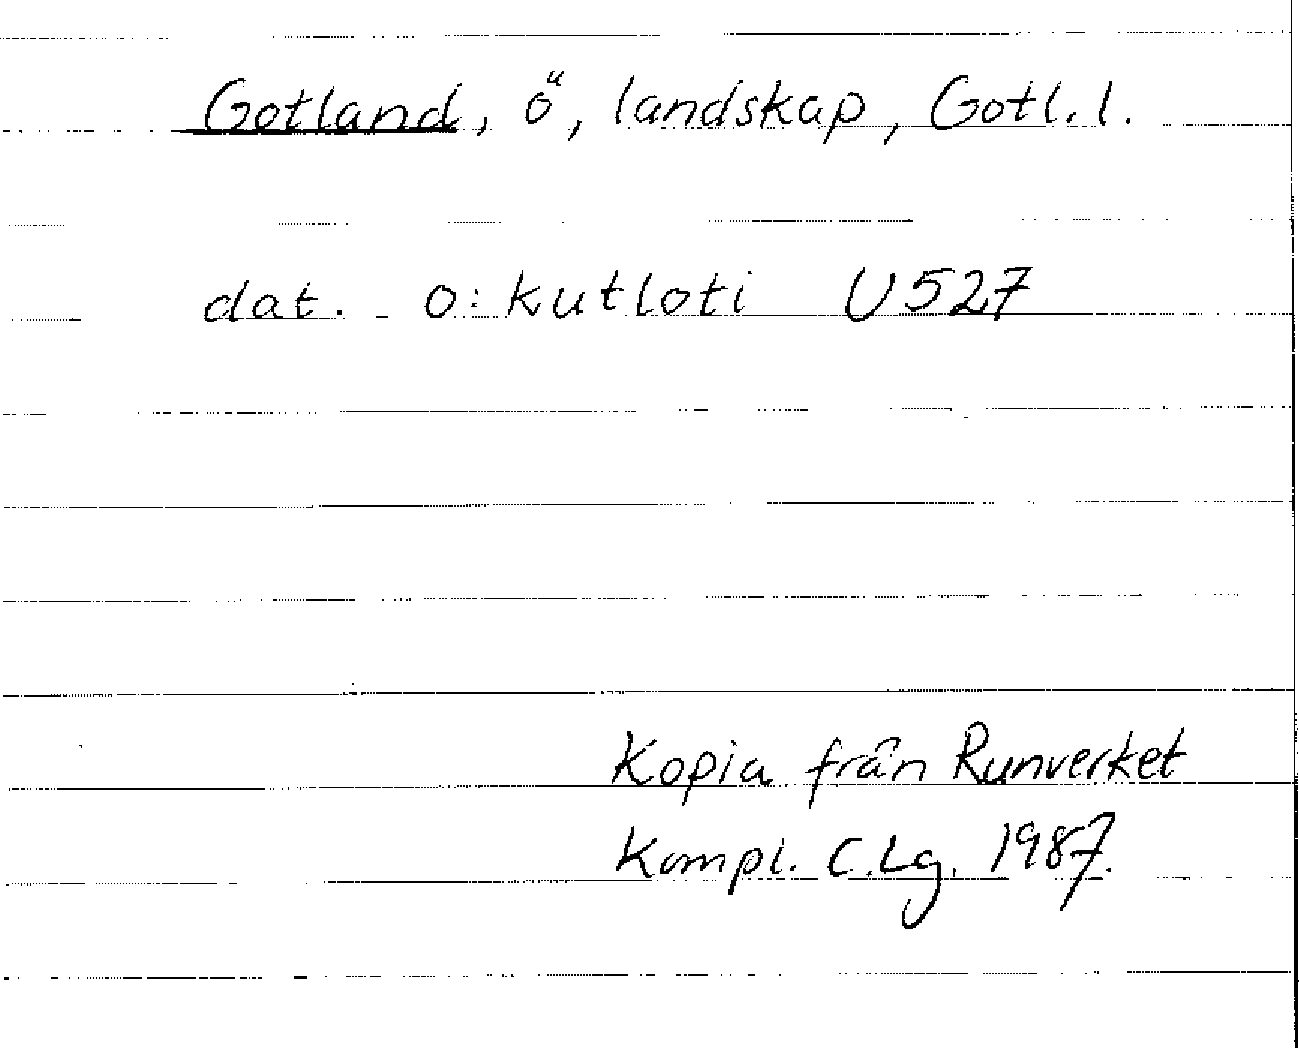 Gotland, ö, landskap, Gotl. l.
dat. o:kutloti U 527
Kopia från Runverket
Kompl. C.Lg. 1987.